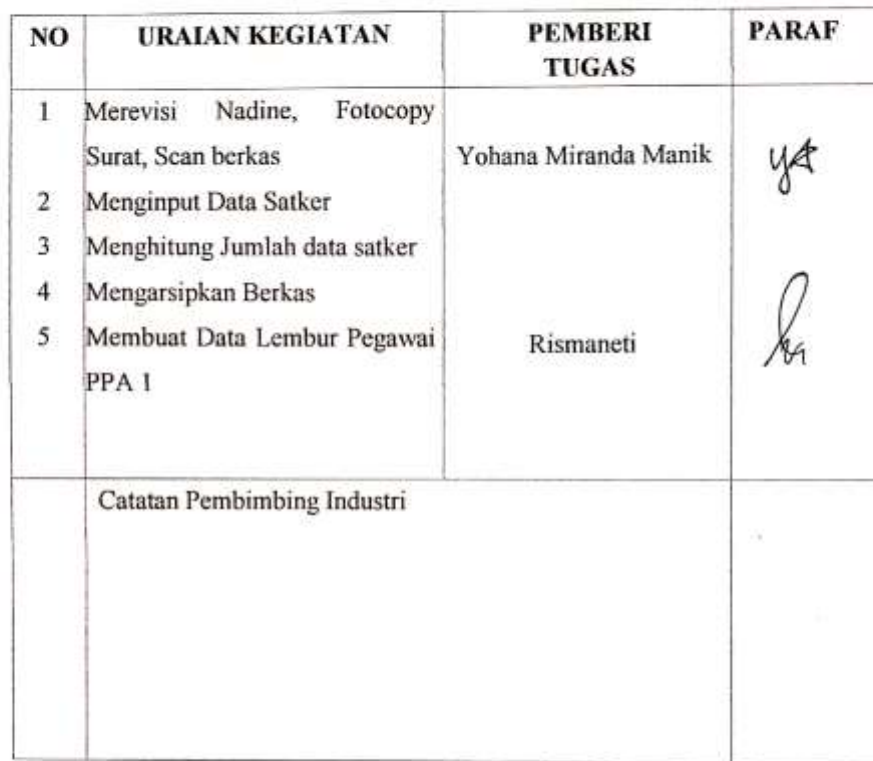 NO URAIAN KEGIATAN PEMBERI TUGAS PARAF
1 Merevisi Nadine, Fotocopy
Surat, Scan berkas Yohana Miranda Manik
2 Menginput Data Satker
3 Menghitung Jumlah data satker
4 Mengarsipkan Berkas
5 Membuat Data Lembur Pegawai Rismaneti
PPA 1
Catatan Pembimbing Industri